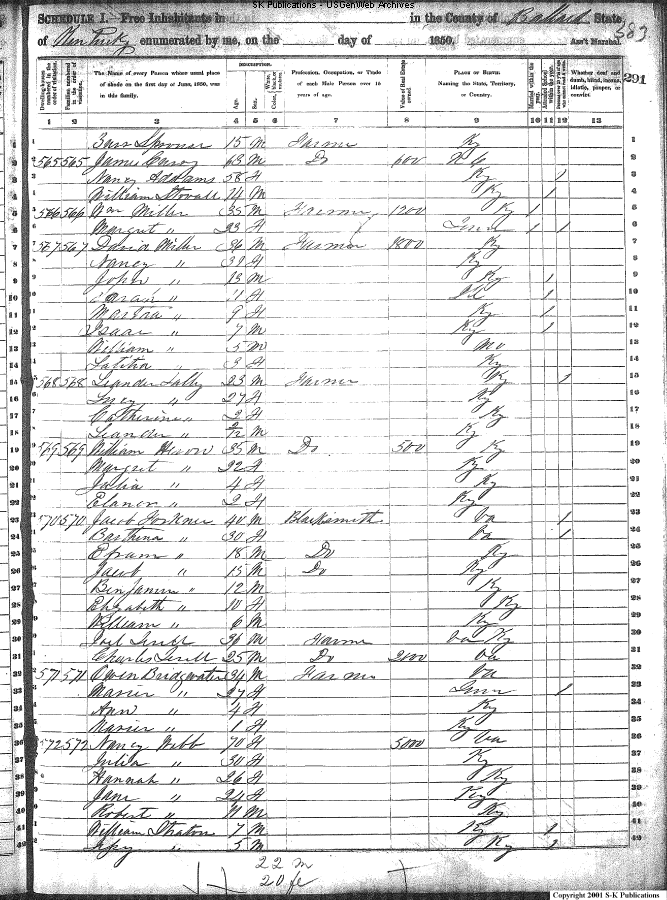 S-K Publications - USGenWeb Archives
SCHEDULE I.—Free Inhabitants in in the County of Ballard State
of Kentucky enumerated by me, on the day of 1850. Ass't Marshal.
583
291
Dwelling-houses numbered in the order of visitation.
Families numbered in the order of visitation.
The Name of every Person whose usual place of abode on the first day of June, 1850, was in this family.
DESCRIPTION.
Age.
Sex.
Color, White, black, or mulatto.
Profession, Occupation, or Trade of each Male Person over 15 years of age.
Value of Real Estate owned
PLACE OF BIRTH. Naming the State, Territory, or Country.
Married within the year.
Attended School within the year.
Persons over 20 y'rs of age who cannot read & write.
Whether deaf and dumb, blind, insane, idiotic, pauper, or convict.
1 2 3 4 5 6 7 8 9 10 11 12 13
1 15 M Farmer Ky 1
2 565 565 James 63 M Do 600 2
3 Nancy Addams 58 F Ky / 3
4 William Stovall 14 M Ky / 4
5 566 566 Wm Miller 35 M Farmer 1200 Ky / 5
6 Margret " 23 F Tenn / / 6
7 567 567 David Miller 36 M Farmer 1800 Ky 7
8 Nancy " 31 F Ky 8
9 John " 13 M Ky / 9
10 Sarah " 11 F / 10
11 Martha " 9 F Ky / 11
12 Isaac " 7 M Ky / 12
13 William " 5 M Mo 13
14 Latitia " 3 F Ky 14
15 568 568 Leander 23 M Farmer Ky / 15
16 " 27 F Ky 16
17 Catherine " 2 F Ky 17
18 Leander " 2/12 M Ky 18
19 569 569 William 35 M Do 500 Ky 19
20 Margret " 22 F Ky 20
21 Julia " 4 F Ky 21
22 Elanor " 2 F Ky 22
23 570 570 Jacob Forkner 40 M Blacksmith Va / 23
24 Barthena " 30 F Va / 24
25 Efram " 18 M Do Ky 25
26 Jacob " 15 M Do Ky 26
27 Benjamin " 12 M Ky 27
28 Elizabeth " 10 F Ky 28
29 William " 6 M Ky 29
30 Joel 36 M Farmer Ky 30
31 Charles 25 M Do 2000 Va 31
32 571 571 Owen Bridgwater 34 M Farmer Va 32
33 " 27 F Tenn / 33
34 Ann " 4 F Ky 34
35 " 1 F Ky 35
36 572 572 Nancy Webb 70 F 5000 Va 36
37 Julia " 30 F Ky 37
38 Hannah " 26 F Ky 38
39 Jane " 24 F Ky 39
40 Robert " M Ky 40
41 William Straton 7 M Ky / 41
42 " 5 M Ky / 42
22 m
20 fe
Copyright 2001 S-K Publications